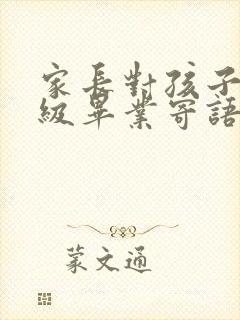 家長對孩子
級畢業寄語
蒙文通